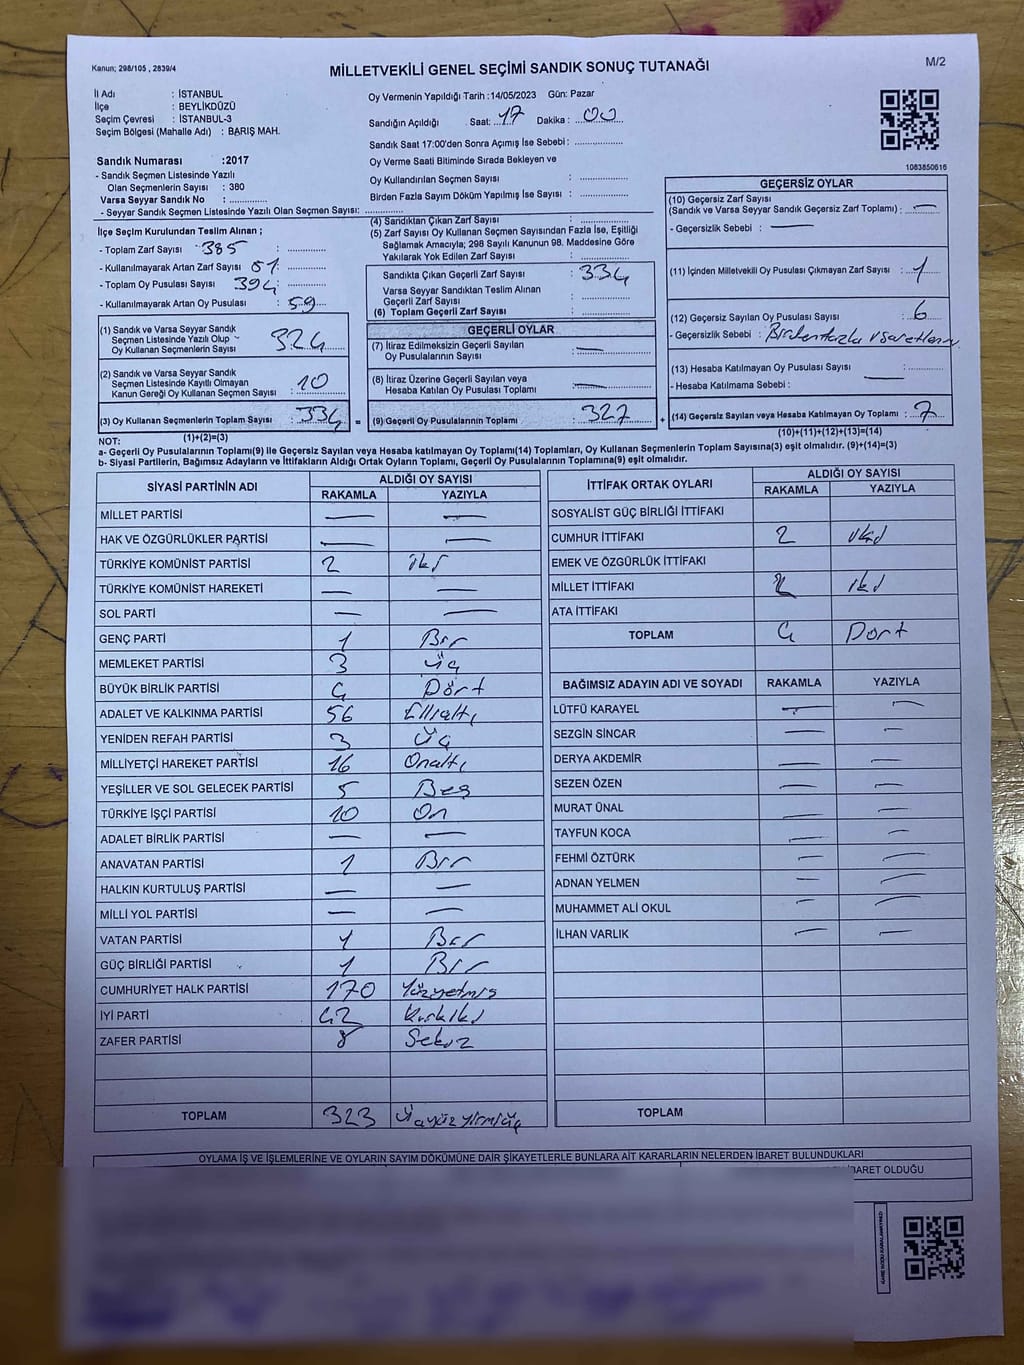 Kanun; 298/105 , 2839/4
M/2
MİLLETVEKİLİ GENEL SEÇİMİ SANDIK SONUÇ TUTANAĞI
İl Adı : İSTANBUL
İlçe : BEYLİKDÜZÜ
Seçim Çevresi : İSTANBUL-3
Seçim Bölgesi (Mahalle Adı) : BARIŞ MAH.
Sandık Numarası :2017
- Sandık Seçmen Listesinde Yazılı
Olan Seçmenlerin Sayısı : 380
Varsa Seyyar Sandık No : ............
- Seyyar Sandık Seçmen Listesinde Yazılı Olan Seçmen Sayısı: ............
Oy Vermenin Yapıldığı Tarih :14/05/2023 Gün: Pazar
Sandığın Açıldığı Saat: 17 Dakika : 00
Sandık Saat 17:00'den Sonra Açımış İse Sebebi : ............
Oy Verme Saati Bitiminde Sırada Bekleyen ve
Oy Kullandırılan Seçmen Sayısı : ............
Birden Fazla Sayım Döküm Yapılmış İse Sayısı : ............
1083850616
İlçe Seçim Kurulundan Teslim Alınan ;
- Toplam Zarf Sayısı 385 : ............
- Kullanılmayarak Artan Zarf Sayısı 51 : ............
- Toplam Oy Pusulası 394 : ............
- Kullanılmayarak Artan Oy Pusulası : 59
(1) Sandık ve Varsa Seyyar Sandık
Seçmen Listesinde Yazılı Olup
Oy Kullanan Seçmenlerin Sayısı : 324
(2) Sandık ve Varsa Seyyar Sandık
Seçmen Listesinde Kayıtlı Olmayan
Kanun Gereği Oy Kullanan Seçmen Sayısı : 10
(3) Oy Kullanan Seçmenlerin Toplam Sayısı : 334 =
(1)+(2)=(3)
(4) Sandıktan Çıkan Zarf Sayısı : ............
(5) Zarf Sayısı Oy Kullanan Seçmen Sayısından Fazla İse, Eşitliği
Sağlamak Amacıyla; 298 Sayılı Kanunun 98. Maddesine Göre
Yakılarak Yok Edilen Zarf Sayısı : ............
Sandıkta Çıkan Geçerli Zarf Sayısı : 334
Varsa Seyyar Sandıktan Teslim Alınan
Geçerli Zarf Sayısı : ............
(6) Toplam Geçerli Zarf Sayısı : ............
GEÇERLİ OYLAR
(7) İtiraz Edilmeksizin Geçerli Sayılan
Oy Pusulalarının Sayısı : —
(8) İtiraz Üzerine Geçerli Sayılan veya
Hesaba Katılan Oy Pusulası Toplamı : —
(9) Geçerli Oy Pusulalarının Toplamı : 327 +
GEÇERSİZ OYLAR
(10) Geçersiz Zarf Sayısı
(Sandık ve Varsa Seyyar Sandık Geçersiz Zarf Toplamı) : —
- Geçersizlik Sebebi : —
(11) İçinden Milletvekili Oy Pusulası Çıkmayan Zarf Sayısı : 1
(12) Geçersiz Sayılan Oy Pusulası Sayısı : 6
- Geçersizlik Sebebi : Birden fazla
(13) Hesaba Katılmayan Oy Pusulası Sayısı : ............
- Hesaba Katılmama Sebebi : —
(14) Geçersiz Sayılan veya Hesaba Katılmayan Oy Toplamı : 7
(10)+(11)+(12)+(13)=(14)
NOT:
a- Geçerli Oy Pusulalarının Toplamı(9) ile Geçersiz Sayılan veya Hesaba katılmayan Oy Toplamı(14) Toplamları, Oy Kullanan Seçmenlerin Toplam Sayısına(3) eşit olmalıdır. (9)+(14)=(3)
b- Siyasi Partilerin, Bağımsız Adayların ve İttifakların Aldığı Ortak Oyların Toplamı, Geçerli Oy Pusulalarının Toplamına(9) eşit olmalıdır.
SİYASİ PARTİNİN ADI ALDIĞI OY SAYISI
RAKAMLA YAZIYLA
MİLLET PARTİSİ — —
HAK VE ÖZGÜRLÜKLER PARTİSİ — —
TÜRKİYE KOMÜNİST PARTİSİ 2 iki
TÜRKİYE KOMÜNİST HAREKETİ — —
SOL PARTİ — —
GENÇ PARTİ 1 Bir
MEMLEKET PARTİSİ 3 Üç
BÜYÜK BİRLİK PARTİSİ 4 Dört
ADALET VE KALKINMA PARTİSİ 56 Ellialtı
YENİDEN REFAH PARTİSİ 3 Üç
MİLLİYETÇİ HAREKET PARTİSİ 16 Onaltı
YEŞİLLER VE SOL GELECEK PARTİSİ 5 Beş
TÜRKİYE İŞÇİ PARTİSİ 10 On
ADALET BİRLİK PARTİSİ — —
ANAVATAN PARTİSİ 1 Bir
HALKIN KURTULUŞ PARTİSİ — —
MİLLİ YOL PARTİSİ — —
VATAN PARTİSİ 1 Bir
GÜÇ BİRLİĞİ PARTİSİ 1 Bir
CUMHURİYET HALK PARTİSİ 170 Yüzyetmiş
İYİ PARTİ 42 Kırkiki
ZAFER PARTİSİ 8 Sekiz
TOPLAM 323 Üçyüzyirmiüç
İTTİFAK ORTAK OYLARI ALDIĞI OY SAYISI
RAKAMLA YAZIYLA
SOSYALİST GÜÇ BİRLİĞİ İTTİFAKI
CUMHUR İTTİFAKI 2 iki
EMEK VE ÖZGÜRLÜK İTTİFAKI
MİLLET İTTİFAKI 2 iki
ATA İTTİFAKI
TOPLAM 4 Dört
BAĞIMSIZ ADAYIN ADI VE SOYADI RAKAMLA YAZIYLA
LÜTFÜ KARAYEL — —
SEZGİN SİNCAR — —
DERYA AKDEMİR — —
SEZEN ÖZEN — —
MURAT ÜNAL — —
TAYFUN KOCA — —
FEHMİ ÖZTÜRK — —
ADNAN YELMEN — —
MUHAMMET ALİ OKUL — —
İLHAN VARLIK — —
TOPLAM
OYLAMA İŞ VE İŞLEMLERİNE VE OYLARIN SAYIM DÖKÜMÜNE DAİR ŞİKAYETLERLE BUNLARA AİT KARARLARIN NELERDEN İBARET BULUNDUKLARI
İBARET OLDUĞU